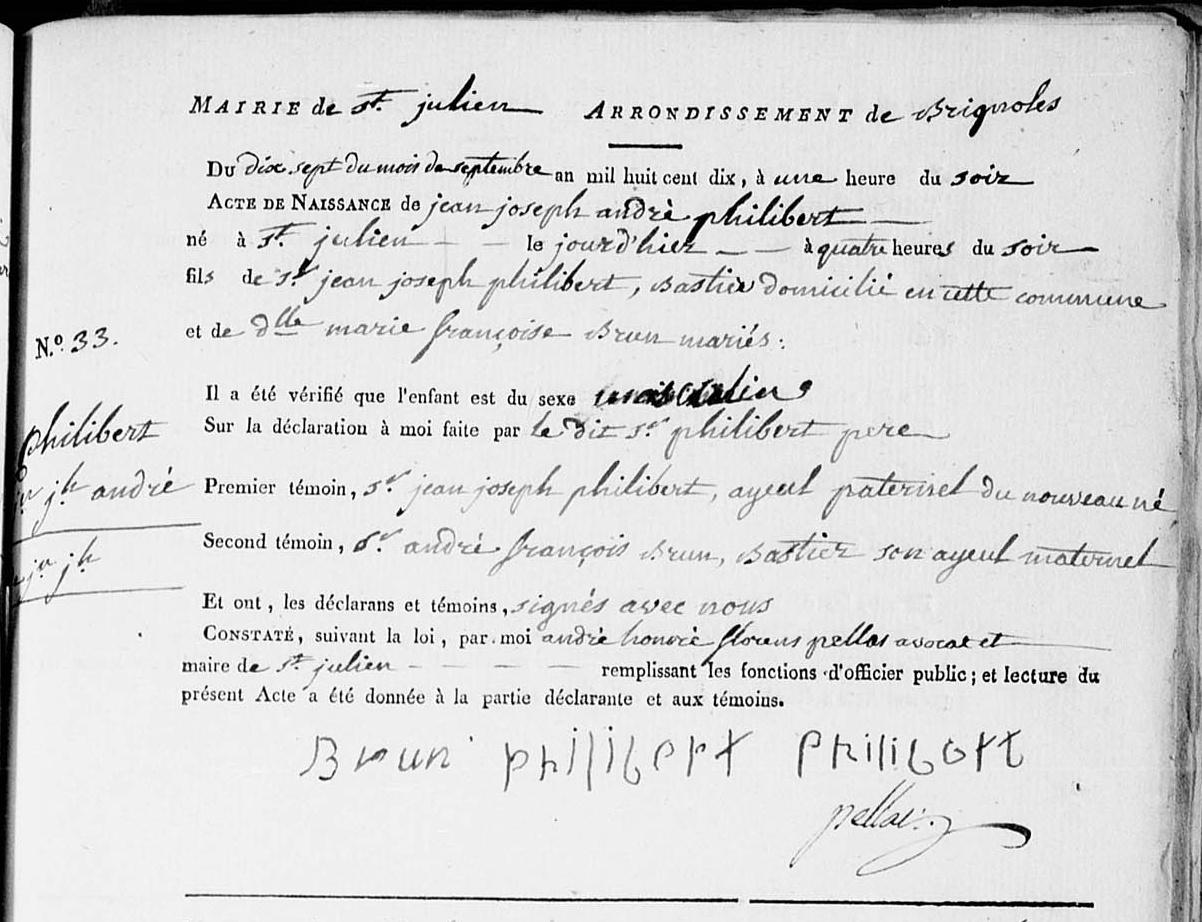 MAIRIE de St. julien ARRONDISSEMENT de Brignoles
DU dix sept du mois de septembre an mil huit cent dix, à une heure du soir
ACTE DE NAISSANCE de jean joseph andrè philibert
né à St. julien - - le jourd'hier - - à quatre heures du soir
fils de Sr. jean joseph philibert, Bastier domicilié en cette commune
et de dlle marie françoise Brun mariés.
N.º 33.
Il a été vérifié que l'enfant est du sexe masculin
philibert
Sur la déclaration à moi faite par le dit Sr. philibert pere
jh andré
Premier témoin, Sr. jean joseph philibert, ayeul paternel du nouveau né
Second témoin, Sr. andrè françois Brun, Bastier son ayeul maternel
jn jh
Et ont, les déclarans et témoins, signés avec nous
CONSTATÉ, suivant la loi, par moi andré honoré florens pellas avocat et
maire de St. julien - - - - remplissant les fonctions d'officier public; et lecture du
présent Acte a été donnée à la partie déclarante et aux témoins.
Brun philibert Philibert
pellas